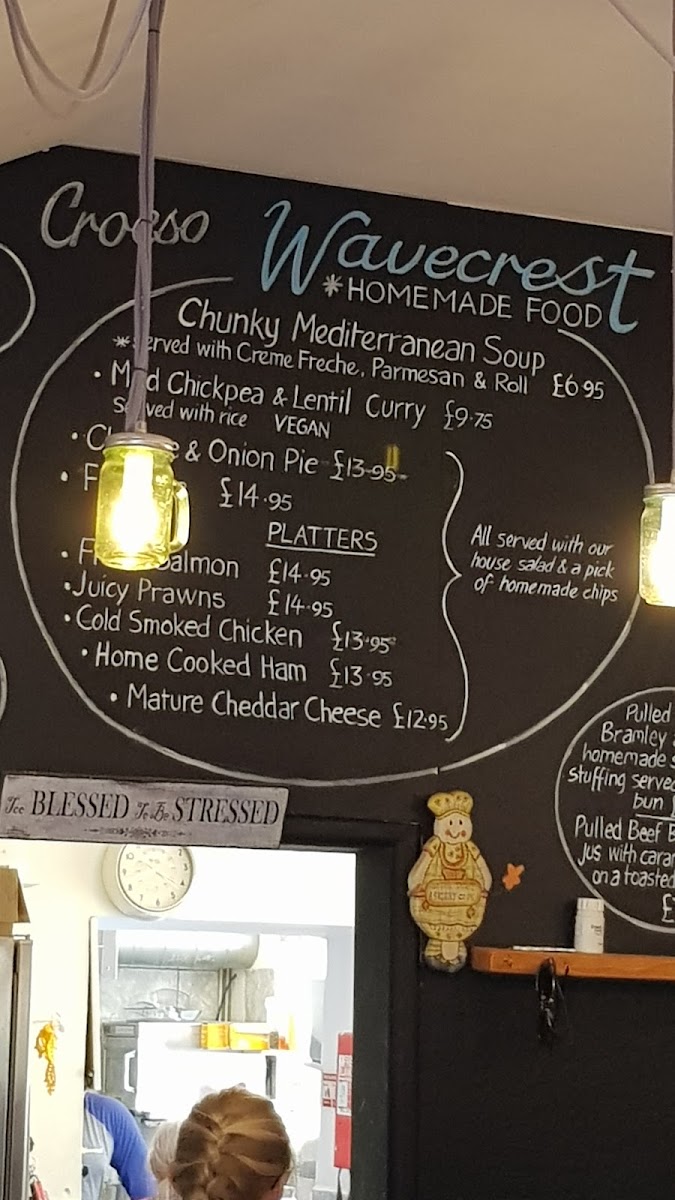 Croeso
Wavecrest
*HOMEMADE FOOD
Chunky Mediterranean Soup
*served with Creme Freche, Parmesan & Roll £6.95
• Mild Chickpea & Lentil Curry £9.75
Served with rice VEGAN
• & Onion Pie £13.95
• £14.95
PLATTERS
• Salmon £14.95
• Juicy Prawns £14.95
• Cold Smoked Chicken £13.95
• Home Cooked Ham £13.95
• Mature Cheddar Cheese £12.95
All served with our
house salad & a pick
of homemade chips
Pulled
Bramley
homemade
stuffing
bun
Pulled Beef
Jus with
on a toasted
£
Too BLESSED To Be STRESSED